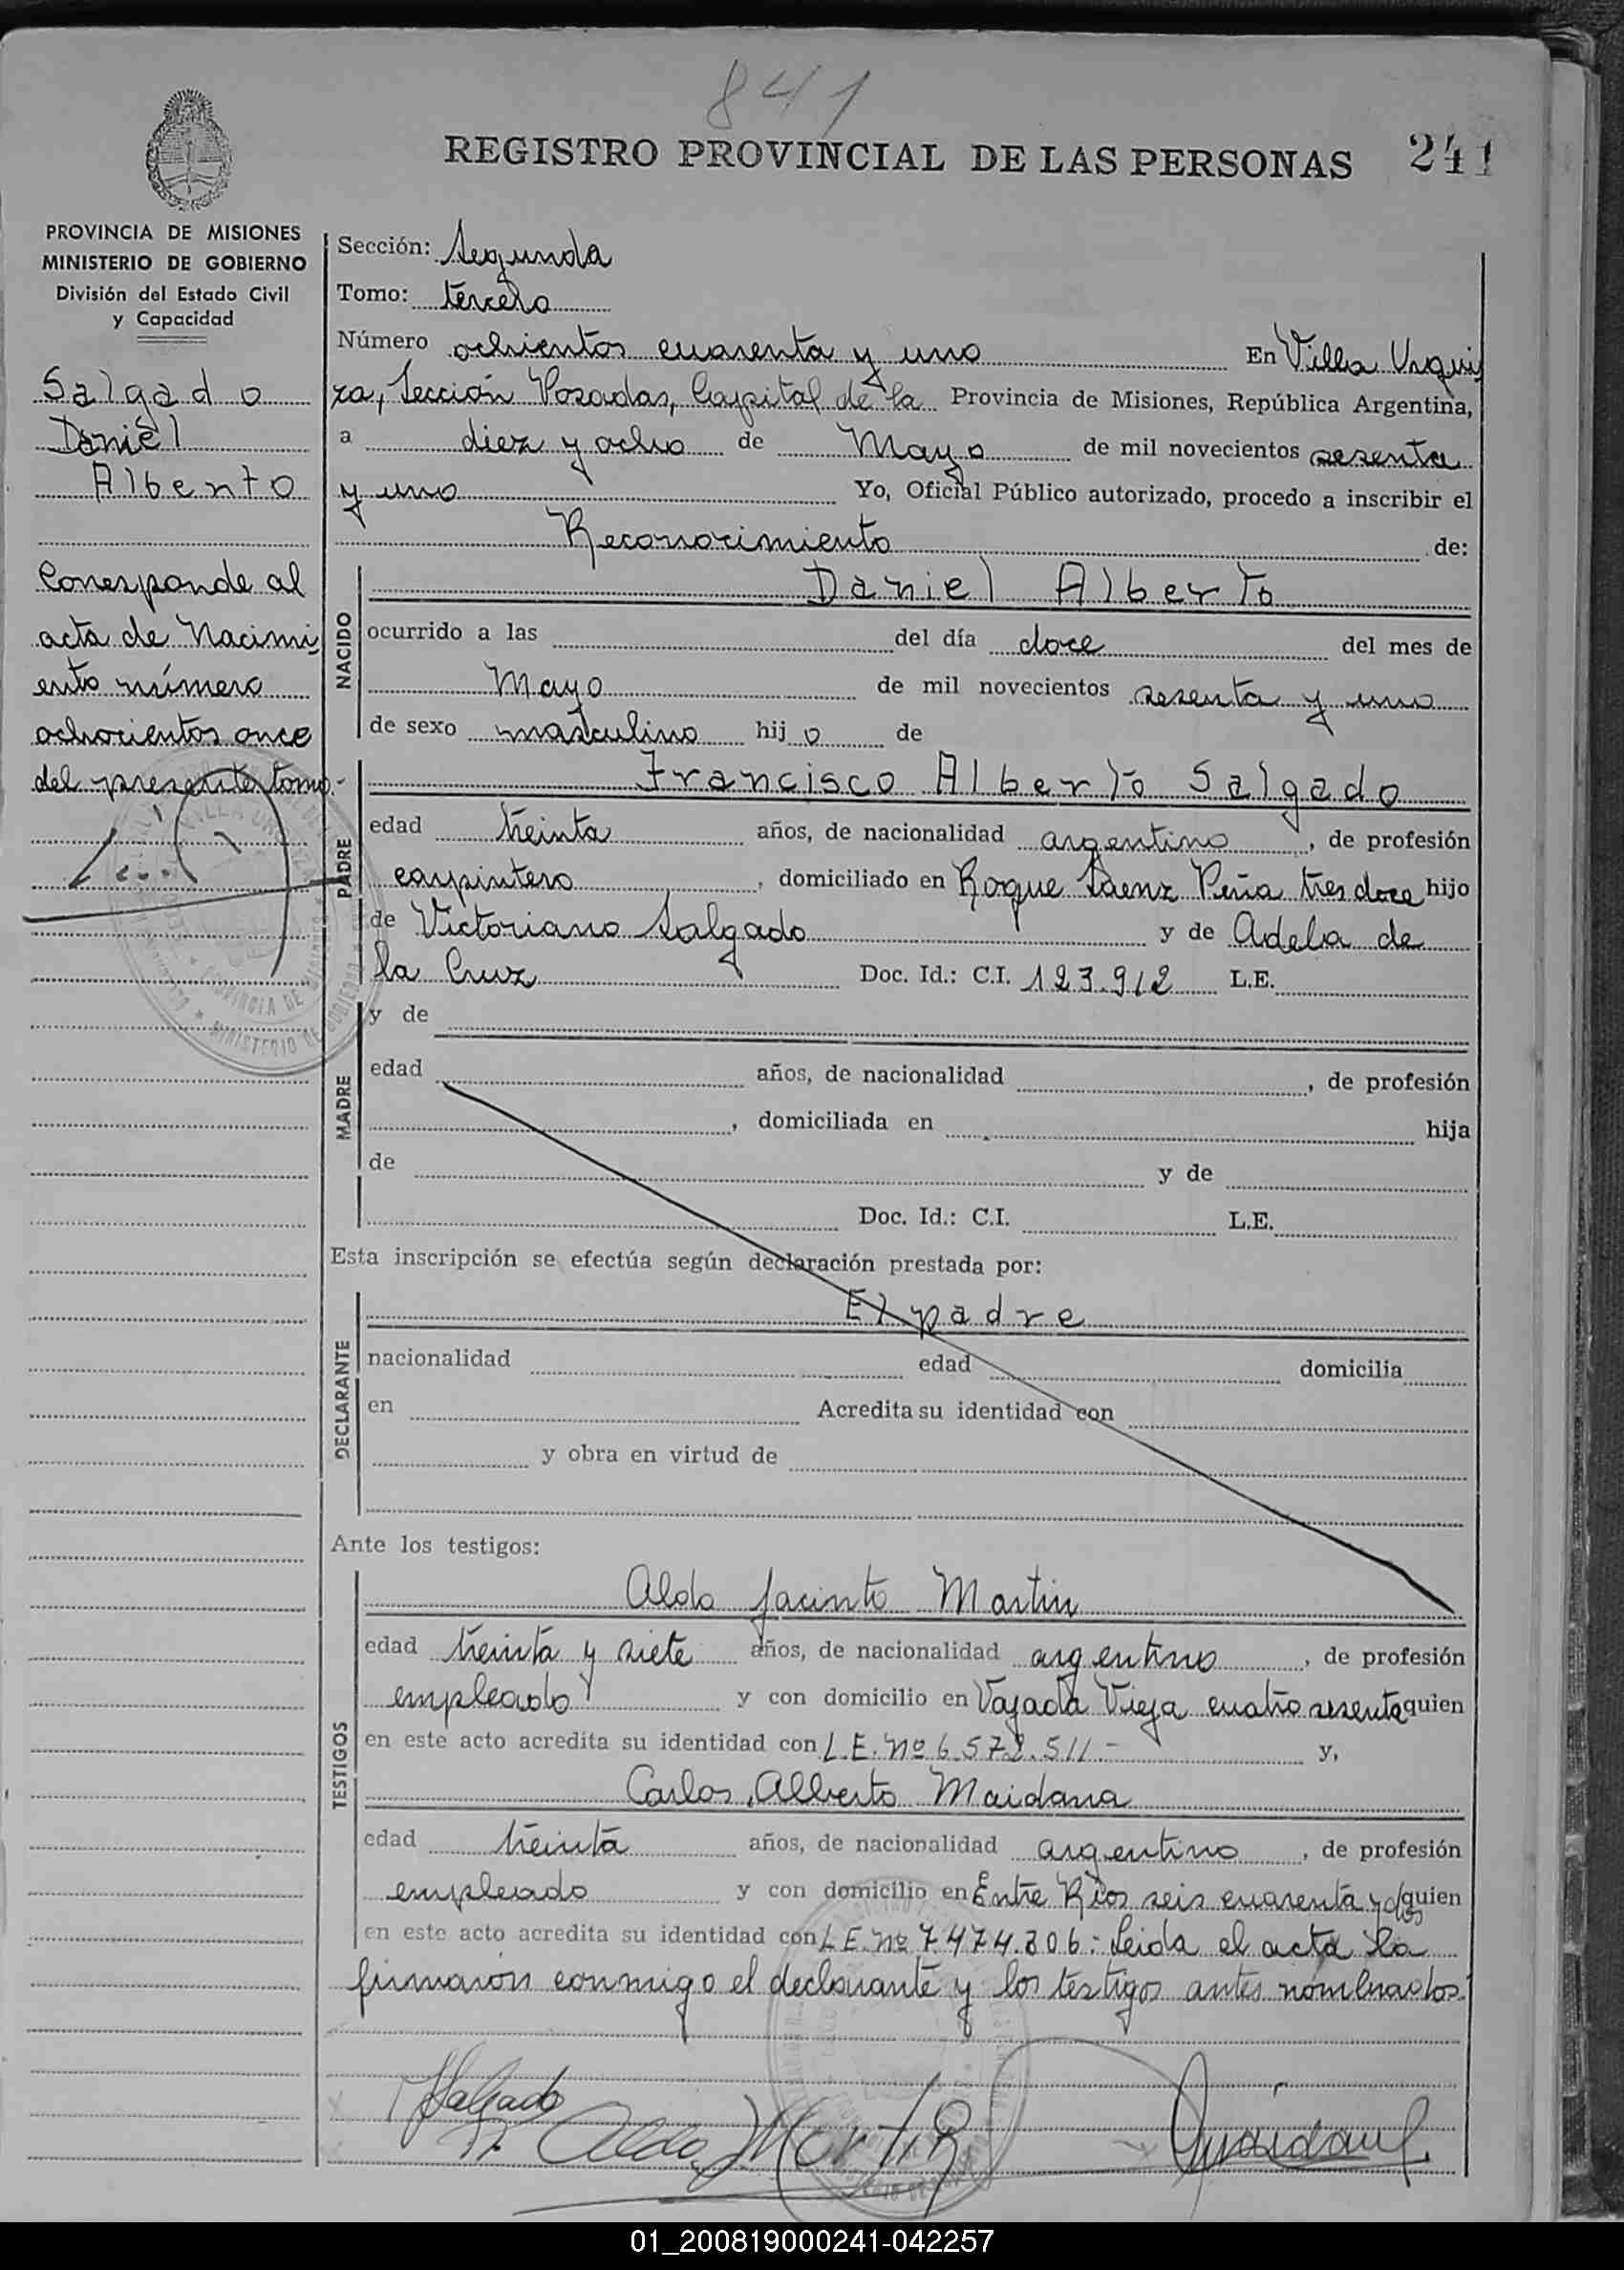 841
REGISTRO PROVINCIAL DE LAS PERSONAS 241
PROVINCIA DE MISIONES
MINISTERIO DE GOBIERNO
División del Estado Civil
y Capacidad
Salgado
Daniel
Alberto
Corresponde al
acta de Nacimi
ento número
ochocientos once
del presente tomo.-
Sección: Segunda
Tomo: tercero
Número ochientos cuarenta y uno En Villa Urqui
za, Sección Posadas, Capital de la Provincia de Misiones, República Argentina,
a diez y ocho de Mayo de mil novecientos sesenta
y uno Yo, Oficial Público autorizado, procedo a inscribir el
Reconocimiento de:
NACIDO
Daniel Alberto
ocurrido a las del día doce del mes de
Mayo de mil novecientos sesenta y uno
de sexo masculino hijo de
PADRE
Francisco Alberto Salgado
edad treinta años, de nacionalidad argentino, de profesión
carpintero, domiciliado en Roque Saenz Peña tres doce hijo
de Victoriano Salgado y de Adela de
la Cruz Doc. Id.: C.I. 123.912 L.E.
MADRE
y de
edad años, de nacionalidad , de profesión
, domiciliada en hija
de y de
Doc. Id.: C.I. L.E.
Esta inscripción se efectúa según declaración prestada por:
DECLARANTE
El padre
nacionalidad edad domicilia
en Acredita su identidad con
y obra en virtud de
Ante los testigos:
TESTIGOS
Aldo Jacinto Martin
edad treinta y siete años, de nacionalidad argentino, de profesión
empleado y con domicilio en Vajada Vieja cuatro sesenta quien
en este acto acredita su identidad con L.E. Nº 6.572.511.- y,
Carlos Alberto Maidana
edad treinta años, de nacionalidad argentino, de profesión
empleado y con domicilio en Entre Ríos seis cuarenta y dos quien
en este acto acredita su identidad con L.E. Nº 7.474.306.- Leida el acta la
firmaron conmigo el declarante y los testigos antes nombrados.
Salgado
Aldo Martin
Maidana
01_200819000241-042257